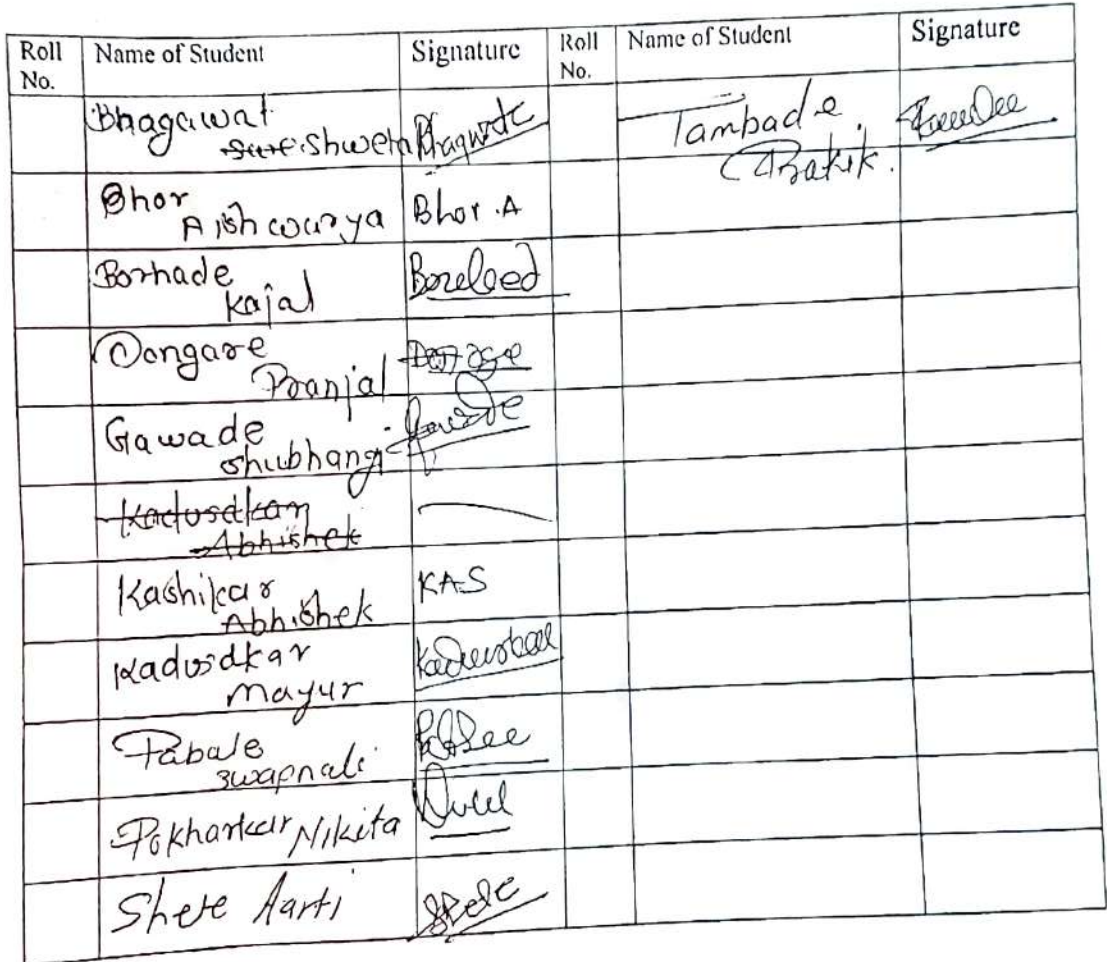 Roll No. Name of Student Signature Roll No. Name of Student Signature
Bhagawat
Shweta Bhagwat
Tambade
Pratik.
Bhor
Aishwarya Bhor.A
Borhade
Kajal
Dongare
Pranjal
Gawade
Shubhangi
Kadusdkar
Abhishek
Kashikar KAS
Abhishek
Kadusdkar
Mayur
Pabale
Swapnali
Pokharkar Nikita
Shete Aarti Shete